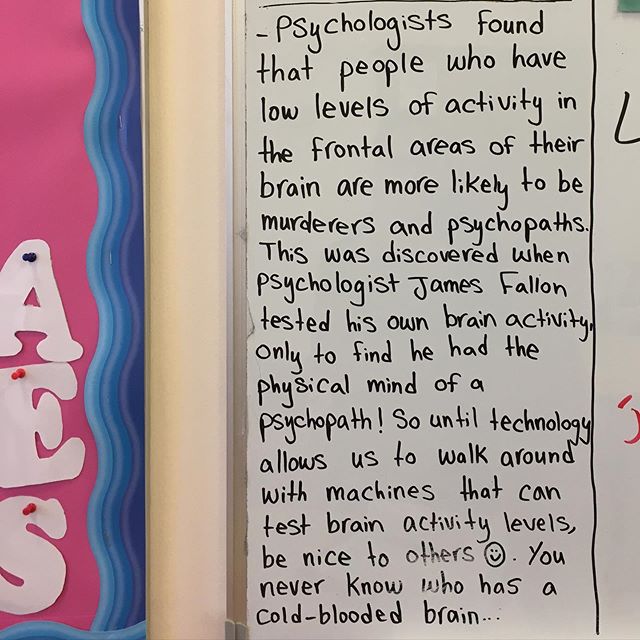 - Psychologists found
that people who have
low levels of activity in
the frontal areas of their
brain are more likely to be
murderers and psychopaths.
This was discovered when
psychologist James Fallon
tested his own brain activity,
only to find he had the
physical mind of a
psychopath! So until technology
allows us to walk around
with machines that can
test brain activity levels,
be nice to others ☺. You
never know who has a
cold-blooded brain...
A
E
S
L